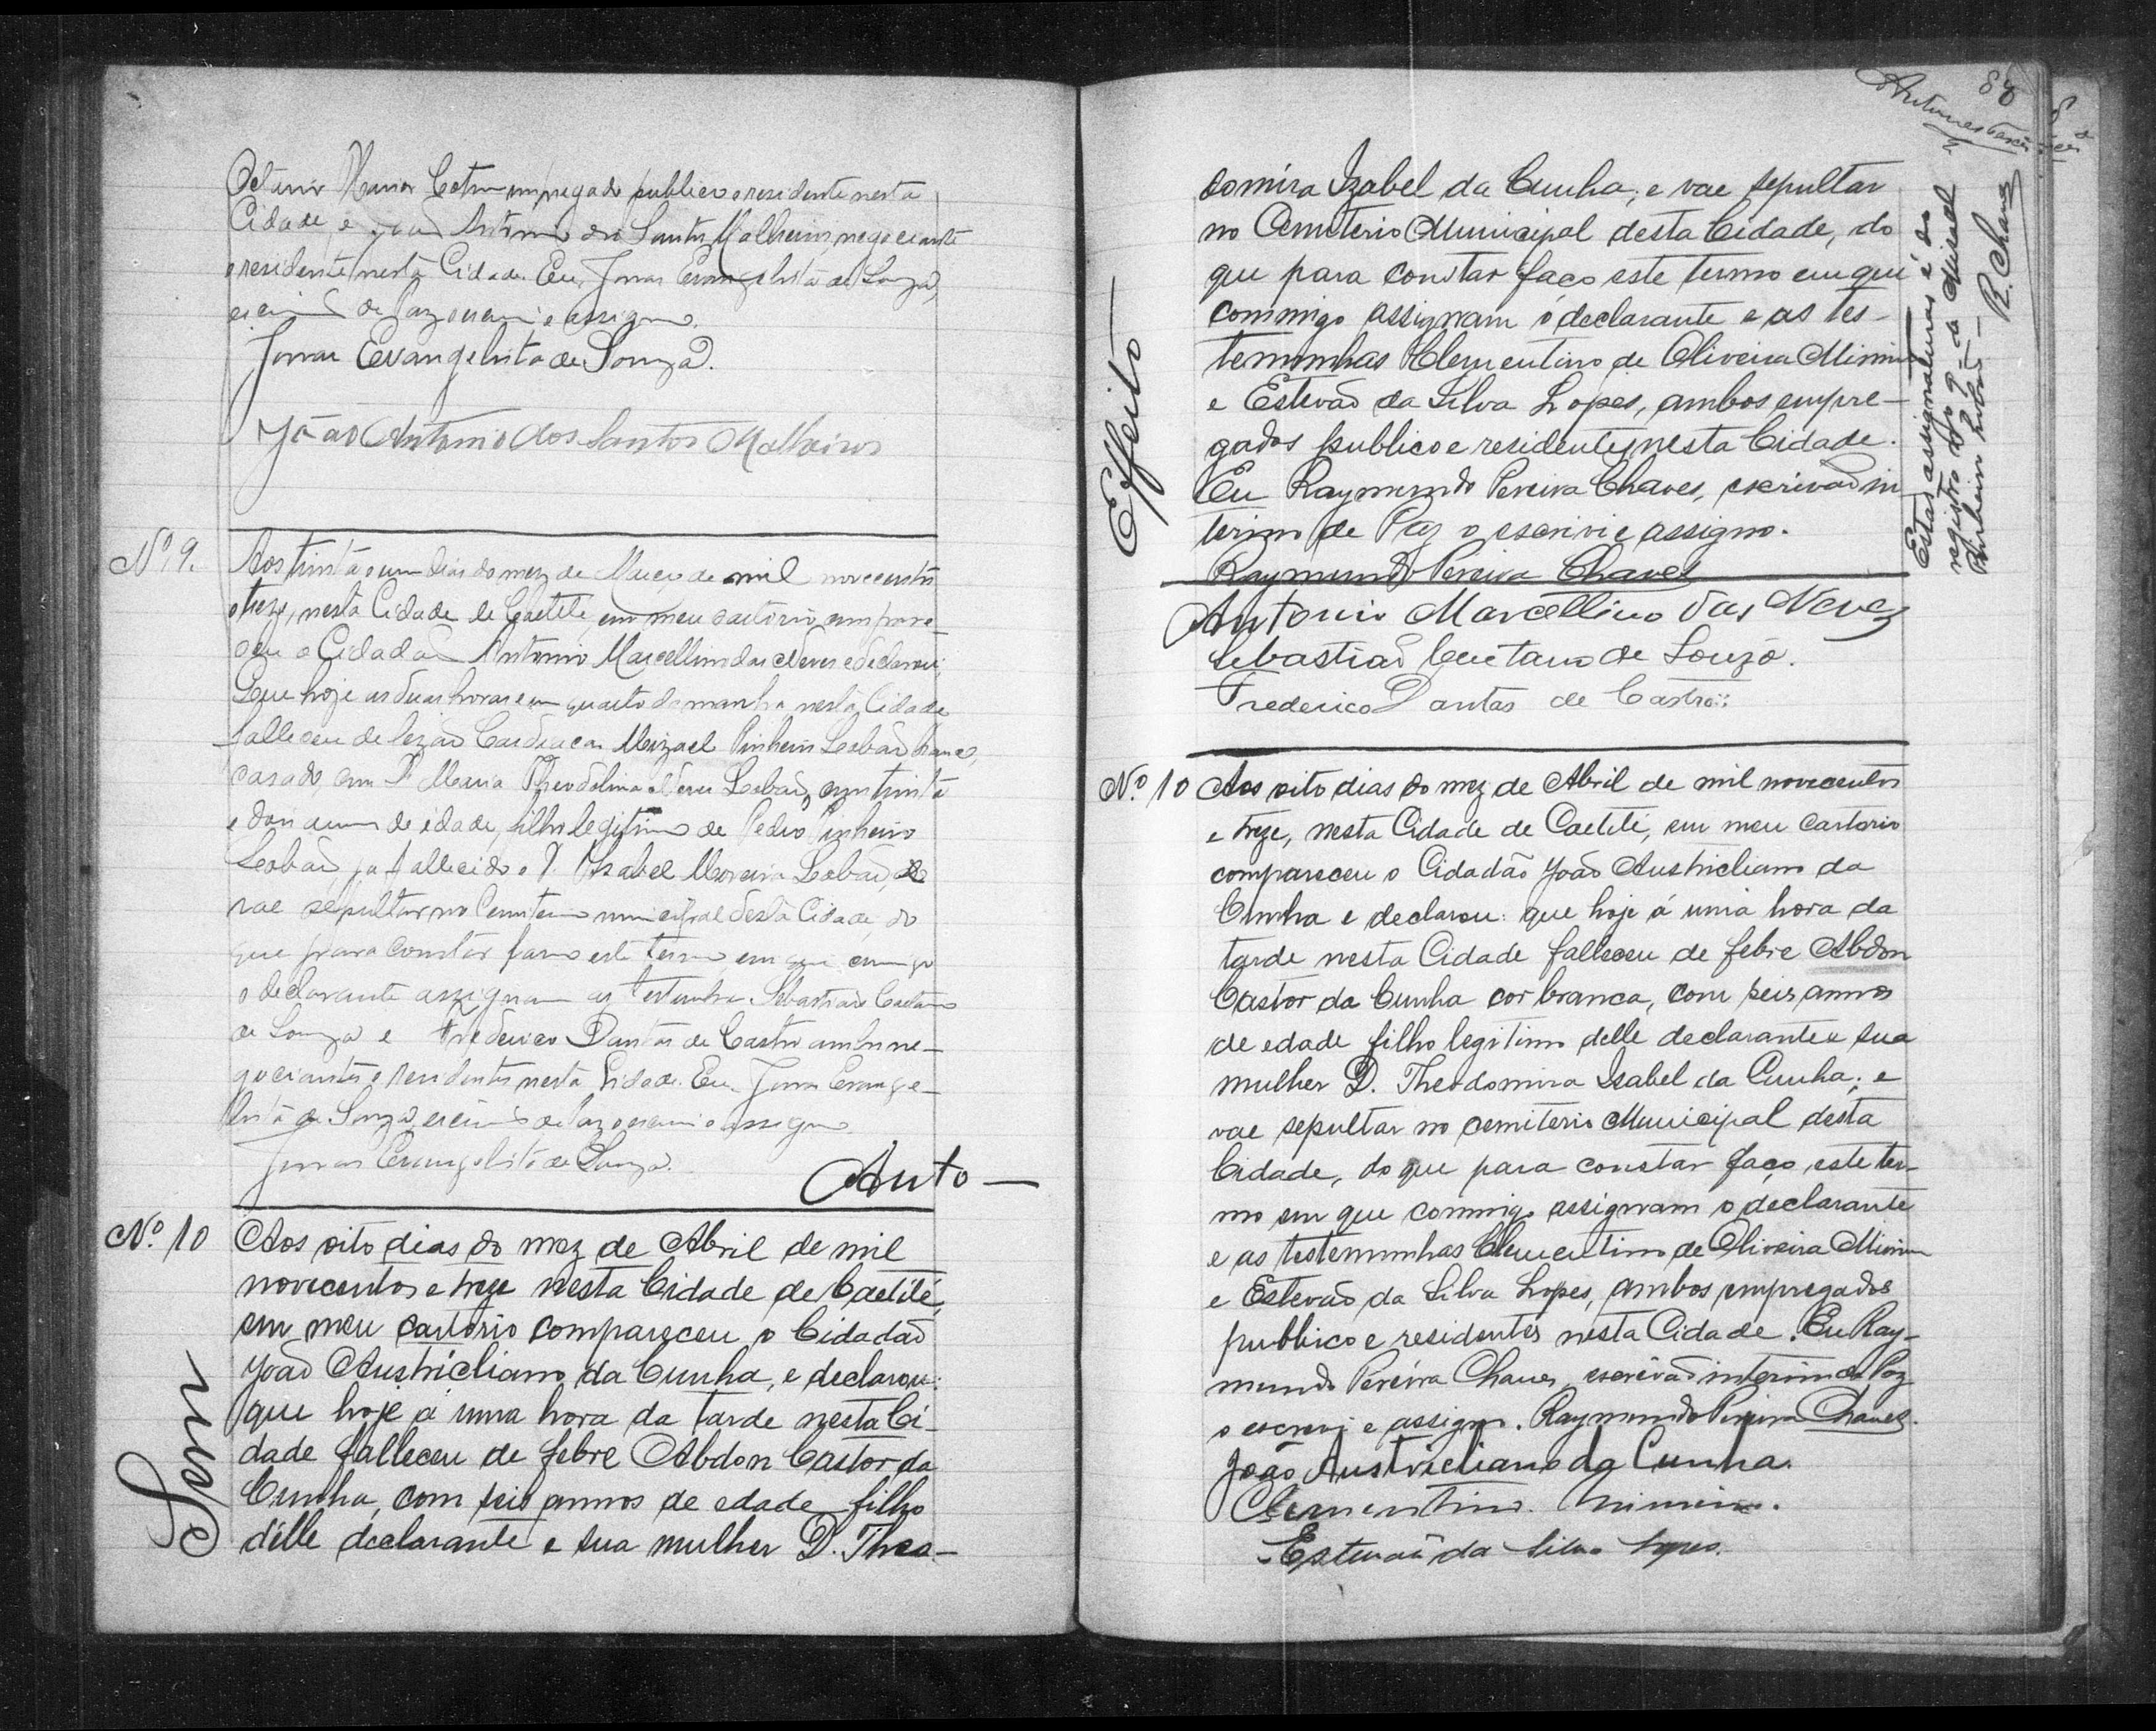 empregado publico e residente nesta
Cidade, e João Antonio dos Santos Malheiros, negociante
e residente nesta Cidade. Eu, Evangelista de Souza,
escrivão de Paz o escrevi e assigno.
Evangelista de Souza.
João Antonio dos Santos Malheiros
Nº 9.
Aos trinta e um dias do mez de Março de mil novecentos
e treze, nesta Cidade de Caetité, em meu cartorio, compare-
ceu o Cidadão Antonio Marcellino das Neves e declarou:
Que hoje as duas horas e um quarto da manhã nesta Cidade
falleceu de lezão Cardiaca Mizael Pinheiro Lobão, branco,
casado com D. Maria Theodolina Neves Lobão, com trinta
e dois annos de idade, filho legitimo de Pedro Pinheiro
Lobão, ja fallecido e D. Izabel Moreira Lobão, e
vae sepultar no Cemiterio municipal desta Cidade, do
que para constar faço este termo em que commigo
o declarante assignam as testemunhas Sebastião Caetano
de Souza e Frederico Dantas de Castro ambos ne-
gociantes e residentes nesta Cidade. Eu, Evange-
lista de Souza, escrivão de Paz o escrevi e assigno
Evangelista de Souza.
Anto-
Nº 10
Sem
Aos oito dias do mez de Abril de mil
novecentos e treze nesta Cidade de Caetité,
em meu cartorio compareceu o Cidadão
João Austricliano da Cunha, e declarou:
que hoje á uma hora da tarde nesta Ci-
dade falleceu de febre Abdon Castor da
Cunha, com seis annos de edade filho
delle declarante e sua mulher D. Theo-
88
Effeito
domira Izabel da Cunha; e vae sepultar
no Cemiterio Municipal desta Cidade, do
que para constar faço este termo em que
commigo assignam o declarante e as tes-
temunhas Clementino de Oliveira
e Estevão da Silva Lopes, ambos empre-
gados publico e residentes nesta Cidade.
Eu Raymundo Pereira Chaves, escrivão in
terino de Paz o escrivi e assigno.
Raymundo Pereira Chaves
Estas assignaturas é do
registro Nº 9 de Misael
Pinheiro Lobão - R. Chaves
Antonio Marcellino das Neves
Sebastião Caetano de Souza.
Frederico Dantas de Castro
Nº 10
Aos oito dias do mez de Abril de mil novecentos
e treze, nesta Cidade de Caetité, em meu cartorio
compareceu o Cidadão João Austricliano da
Cunha e declarou: que hoje á uma hora da
tarde nesta Cidade falleceu de febre Abdon
Castor da Cunha cor branca, com seis annos
de edade filho legitimo delle declarante e sua
mulher D. Theodomira Isabel da Cunha; e
vae sepultar no cemiterio Municipal desta
Cidade, do que para constar faço este ter-
mo em que commigo assignam o declarante
e as testemunhas Clementino de Oliveira
e Estevão da Silva Lopes, ambos empregados
publico e residentes nesta Cidade. Eu Ray-
mundo Pereira Chaves escrivão interino de Paz
o escrevi e assigno. Raymundo Pereira Chaves.
João Austricliano da Cunha.
Clementino
Estevão da Silva Lopes.